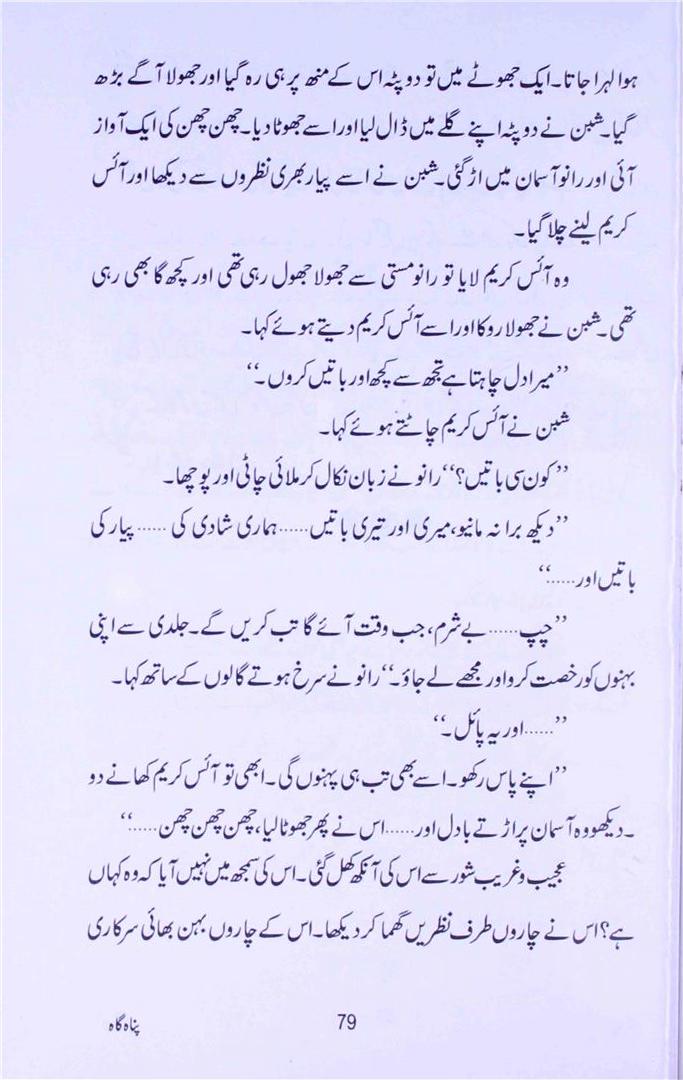 ہوا لہرا جاتا۔ ایک جھوٹے میں تو دوپٹہ اس کے منھ پر ہی رہ گیا اور جھولا آگے بڑھ
گیا۔ شبن نے دوپٹہ اپنے گلے میں ڈال لیا اور اسے جھوٹا دیا۔ چھن چھن کی ایک آواز
آئی اور رانو آسمان میں اڑ گئی۔ شبن نے اسے پیار بھری نظروں سے دیکھا اور آئس
کریم لینے چلا گیا۔
وہ آئس کریم لایا تو رانو مستی سے جھولا جھول رہی تھی اور کچھ گا بھی رہی
تھی۔ شبن نے جھولا روکا اور اسے آئس کریم دیتے ہوئے کہا۔
”میرا دل چاہتا ہے تجھ سے کچھ اور باتیں کروں۔“
شبن نے آئس کریم چاٹتے ہوئے کہا۔
”کون سی باتیں؟“ رانو نے زبان نکال کر ملائی چاٹی اور پوچھا۔
”دیکھ برا نہ مانیو، میری اور تیری باتیں...... ہماری شادی کی ...... پیار کی
باتیں اور......“
”چپ...... بے شرم، جب وقت آئے گا تب کریں گے۔ جلدی سے اپنی
بہنوں کو رخصت کرو اور مجھے لے جاؤ۔“ رانو نے سرخ ہوتے گالوں کے ساتھ کہا۔
”...... اور یہ پائل۔“
”اپنے پاس رکھو۔ اسے بھی تب ہی پہنوں گی۔ ابھی تو آئس کریم کھانے دو
۔ دیکھو وہ آسمان پر اڑتے بادل اور...... اس نے پھر جھوٹا لیا، چھن چھن چھن......“
عجیب و غریب شور سے اس کی آنکھ کھل گئی۔ اس کی سمجھ میں نہیں آیا کہ وہ کہاں
ہے؟ اس نے چاروں طرف نظریں گھما کر دیکھا۔ اس کے چاروں بہن بھائی سرکاری
79
پناہ گاہ